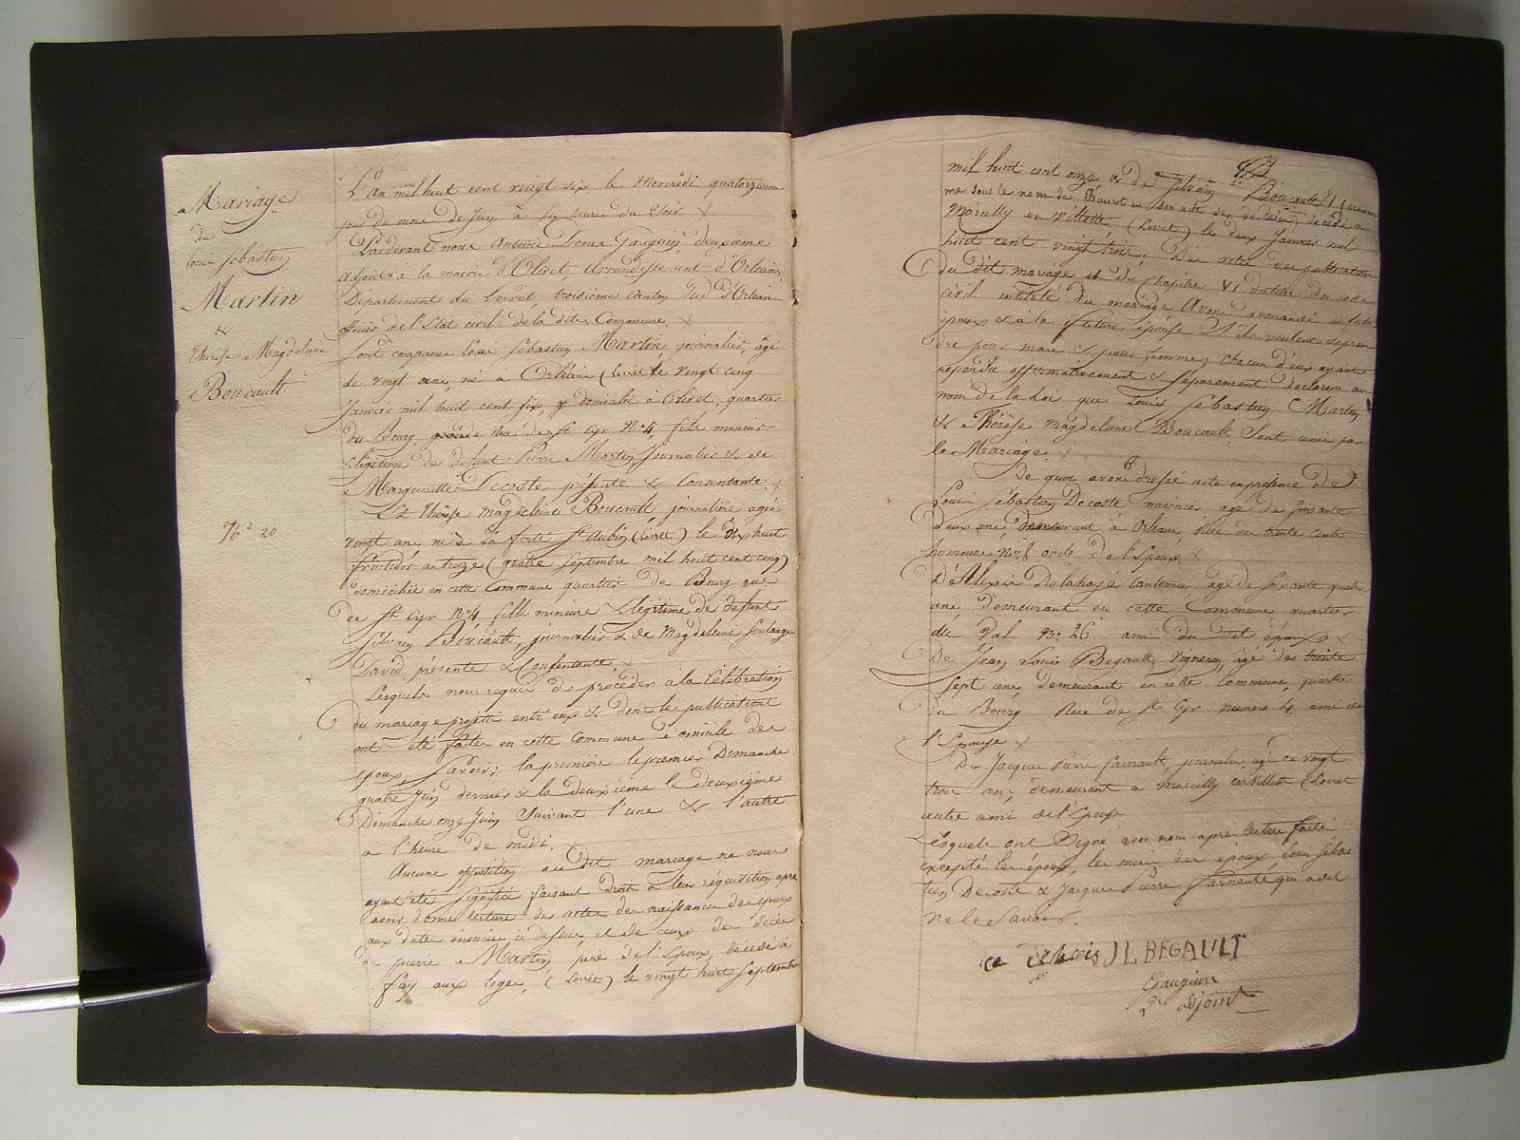 Mariage
de
Louis Sébastien
Martin
&
Thérèse Magdeleine
Boucault
N.º 20
L'An mil huit cent vingt six le Mercredi quatorzieme
jour du mois de Juin à six heures du Soir
Pardevant nous Gauguin, deuxieme
adjoint a la mairie d'Olivet arrondissement d'Orléans,
Département du Loiret, troisieme canton Sud d'Orléans
officier de l'Etat civil de la dite Commune,
Sont comparus Louis Sébastien Martin journalier, âgé
de vingt ans, né à Orléans (Loiret) le vingt cinq
Janvier mil huit cent six, y domicilié à Olivet, quartier
du Bourg, rue de St Cyr N.º 4, fils mineur
& légitime de défunt Pierre Martin Journalier & de
Marguerite Decoste présente & Consentante.
Et Thérèse Magdeleine Boucault journaliere agée
vingt ans, née à la ferté St Aubin (Loiret) le dix huit
fructidor an treize (quatre Septembre mil huit cent cinq)
domiciliée en cette Commune quartier du Bourg rue
de St Cyr N.º 4, fille mineure & légitime de défunt
Silvain Boucault, journalier & de Magdeleine Solange
David présente & Consentante,
Lesquels nous requis de procéder à la Célébration
du mariage projetté entr'eux & dont les publications
ont été faites en cette Commune domicile des
epoux, Savoir; la première le premier Dimanche
quatre Juin dernier & la deuxieme le deuxième
Dimanche onze Juin Suivant l'une & l'autre
a l'heure de midi.
Aucune opposition au dit mariage ne nous
ayant été Signifiée faisant droit à leur réquisition après
avoir donné lecture des actes de naissance des époux
aux dates énoncées ci dessus, et de ceux de décès
de Pierre Martin père de l'Epoux, décédé à
fay aux loges, (Loiret) le vingt huit Septembre
mil huit cent onze & de Silvain Boucault
me sous le nom de en son acte de décès décédé a
Marcilly en Villette (Loiret) le deux Janvier mil
huit cent vingt trois; Des actes de publication
Du dit mariage et du Chapitre VI du titre du code
civil intitulé du mariage Avons demandé au futur
époux & à la future épouse S'ils veulent se pren
dre pour mari & pour femme, chacun d'eux ayant
répondu affirmativement & Séparément déclarons au
nom de la Loi que Louis Sébastien Martin
& Thérèse Magdeleine Boucault, Sont unis par
le Mariage.
De quoi avons dressé acte en presence de
Louis Sébastien Decoste marinier, agé de soixante
deux ans, demeurant à Orléans, Rue des trente cinq
hommes N.º 6 oncle de l'Epoux
D'Alexis Delahaye tonnelier, agé de soixante quatre
ans, demeurant en cette Commune quartier
du Val N.º 26 ami du dit époux
De Jean Louis Begault, Vigneron, âgé de trente
Sept ans, demeurant en cette Commune, quartier
du Bourg Rue de St Cyr numero 4 ami de
l'Epouse
De Jacques Pierre journalier, agé de vingt
trois ans, demeurant a Marcilly en Villette (Loiret
autre ami de l'Epouse
Lesquels ont Signé avec nous après lecture faite
excepté les époux, les meres des époux Louis Sébas
tien Decoste & Jacques Pierre qui a dit
ne le Savoir.
J L BEGAULT
Gauguin
adjoint